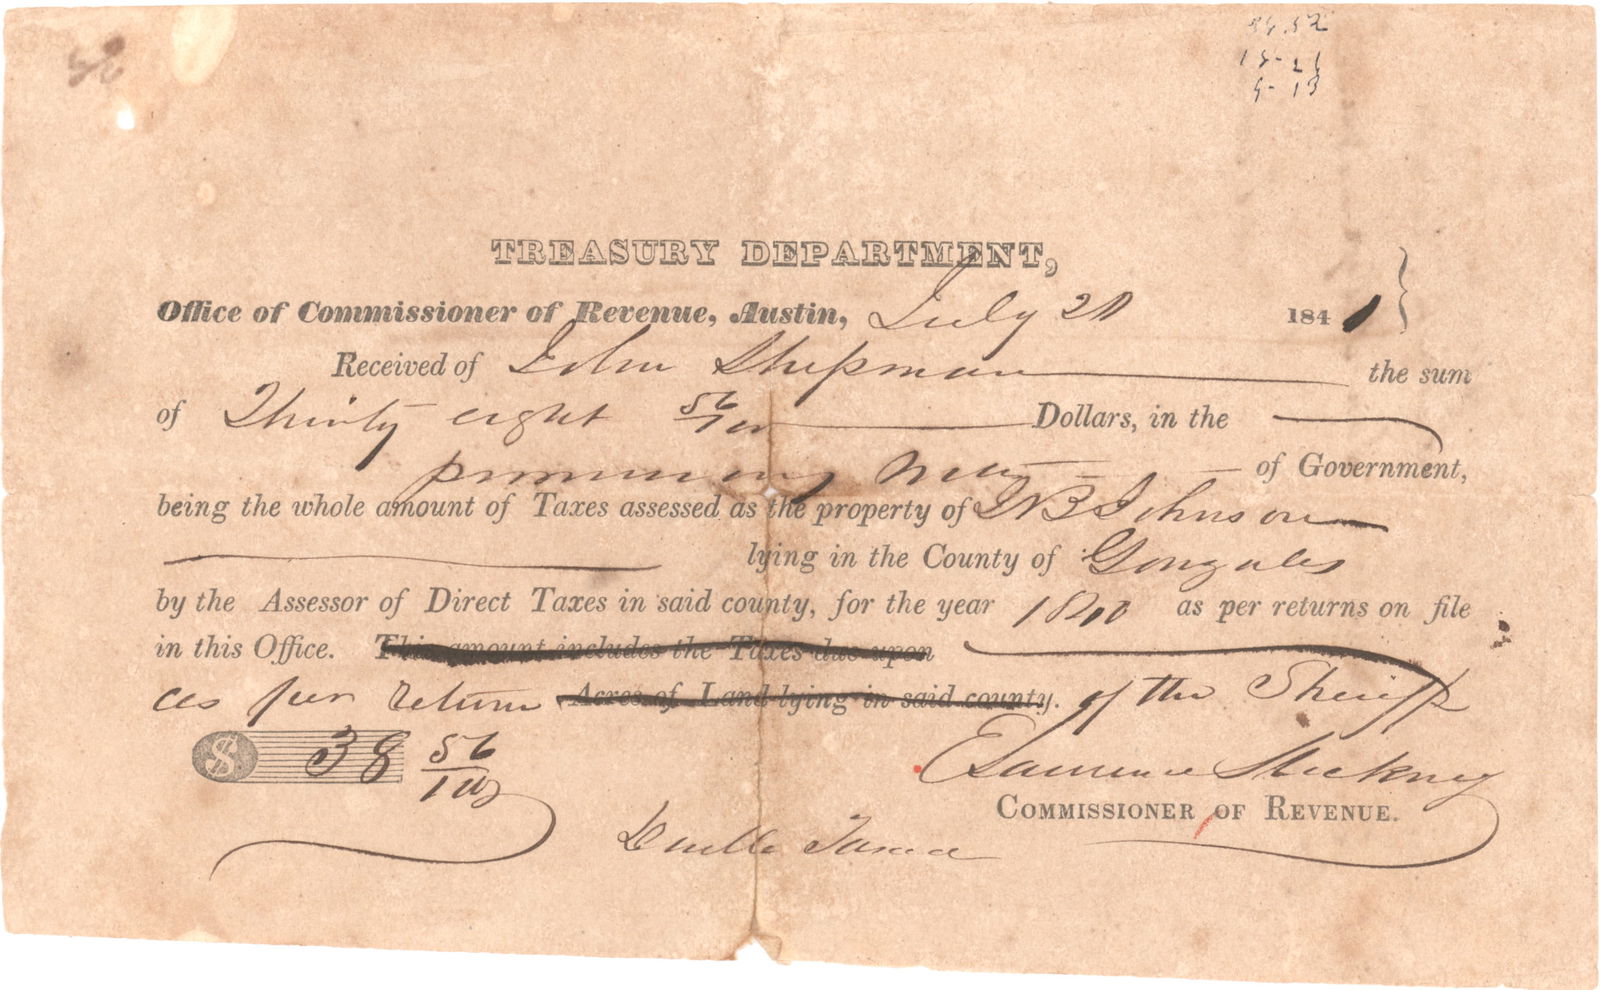 TREASURY DEPARTMENT,
Office of Commissioner of Revenue, Austin, July 20 1841
Received of John Shipman the sum
of Thirty eight 56/100 Dollars, in the
promissory notes of Government,
being the whole amount of Taxes assessed as the property of Johnson
lying in the County of Gonzales
by the Assessor of Direct Taxes in said county, for the year 1840 as per returns on file
in this Office. This amount includes the Taxes due upon
as per return Acres of Land lying in said county. of the Sheriff
$ 38 56/100
Stickney
COMMISSIONER OF REVENUE.